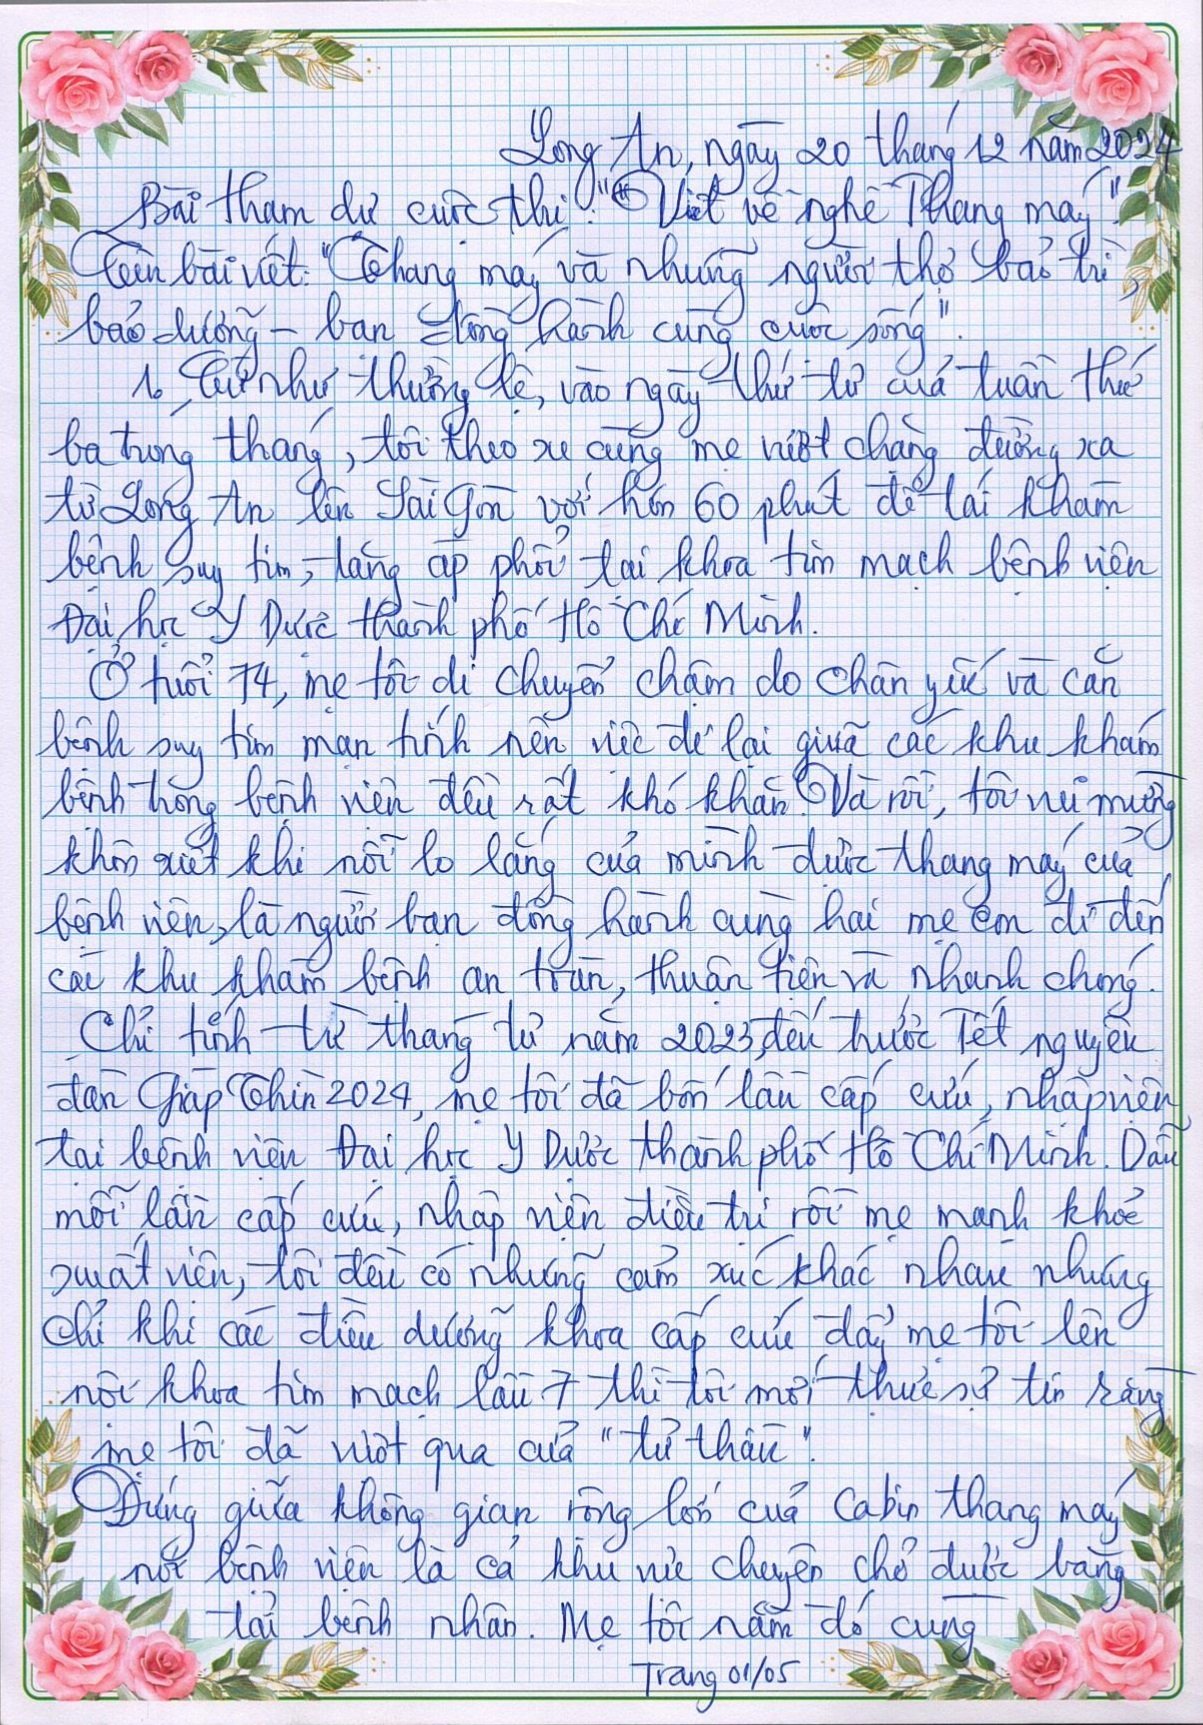 Long An, ngày 20 tháng 12 năm 2024
Bài tham dự cuộc thi: "Viết về nghề Thang máy".
Tên bài viết: "Thang máy và những người thợ bảo trì,
bảo dưỡng – bạn đồng hành cùng cuộc sống".
1. Cứ như thường lệ, vào ngày thứ tư của tuần thứ
ba trong tháng, tôi theo xe cùng mẹ vượt chặng đường xa
từ Long An lên Sài Gòn với hơn 60 phút để tái khám
bệnh suy tim, tăng áp phổi tại khoa tim mạch bệnh viện
Đại học Y Dược thành phố Hồ Chí Minh.
Ở tuổi 74, mẹ tôi di chuyển chậm do chân yếu và căn
bệnh suy tim mạn tính nên việc đi lại giữa các khu khám
bệnh trong bệnh viện đều rất khó khăn. Và rồi, tôi vui mừng
khôn xiết khi nỗi lo lắng của mình được thang máy của
bệnh viện, là người bạn đồng hành cùng hai mẹ con đi đến
các khu khám bệnh an toàn, thuận tiện và nhanh chóng.
Chỉ tính từ tháng tư năm 2023 đến trước Tết nguyên
đán Giáp Thìn 2024, mẹ tôi đã bốn lần cấp cứu, nhập viện
tại bệnh viện Đại học Y Dược thành phố Hồ Chí Minh. Dẫu
mỗi lần cấp cứu, nhập viện điều trị rồi mẹ mạnh khỏe
xuất viện, tôi đều có những cảm xúc khác nhau nhưng
chỉ khi các điều dưỡng khoa cấp cứu đẩy mẹ tôi lên
nội khoa tim mạch lầu 7 thì tôi mới thực sự tin rằng
mẹ tôi đã vượt qua cửa "tử thần".
Đứng giữa không gian rộng lớn của Cabin thang máy
nơi bệnh viện là cả khu vực chuyên chở được băng
tải bệnh nhân. Mẹ tôi nằm đó cùng
Trang 01/05